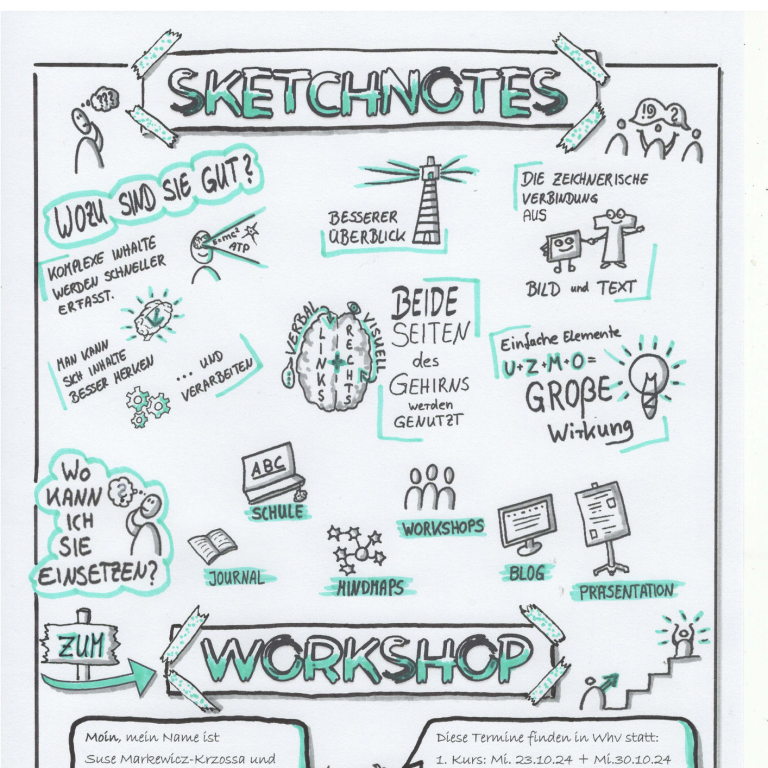 SKETCHNOTES
???
WOZU SIND SIE GUT?
KOMPLEXE INHALTE
WERDEN SCHNELLER
ERFASST.
E=mc²
ATP
MAN KANN
SICH INHALTE
BESSER MERKEN
... UND
VERARBEITEN
BESSERER
ÜBERBLICK
DIE ZEICHNERISCHE
VERBINDUNG
AUS
BILD und TEXT
VERBAL
VISUELL
LINKS
RECHTS
BEIDE
SEITEN
des
GEHIRNS
werden
GENUTZT
Einfache Elemente
U+Z+M+O=
GROßE
Wirkung
WO
KANN
ICH
SIE
EINSETZEN?
?
ABC
SCHULE
JOURNAL
MINDMAPS
WORKSHOPS
BLOG
PRÄSENTATION
ZUM
WORKSHOP
Moin, mein Name ist
Suse Markewicz-Krzossa und
Diese Termine finden in Whv statt:
1. Kurs: Mi. 23.10.24 + Mi.30.10.24